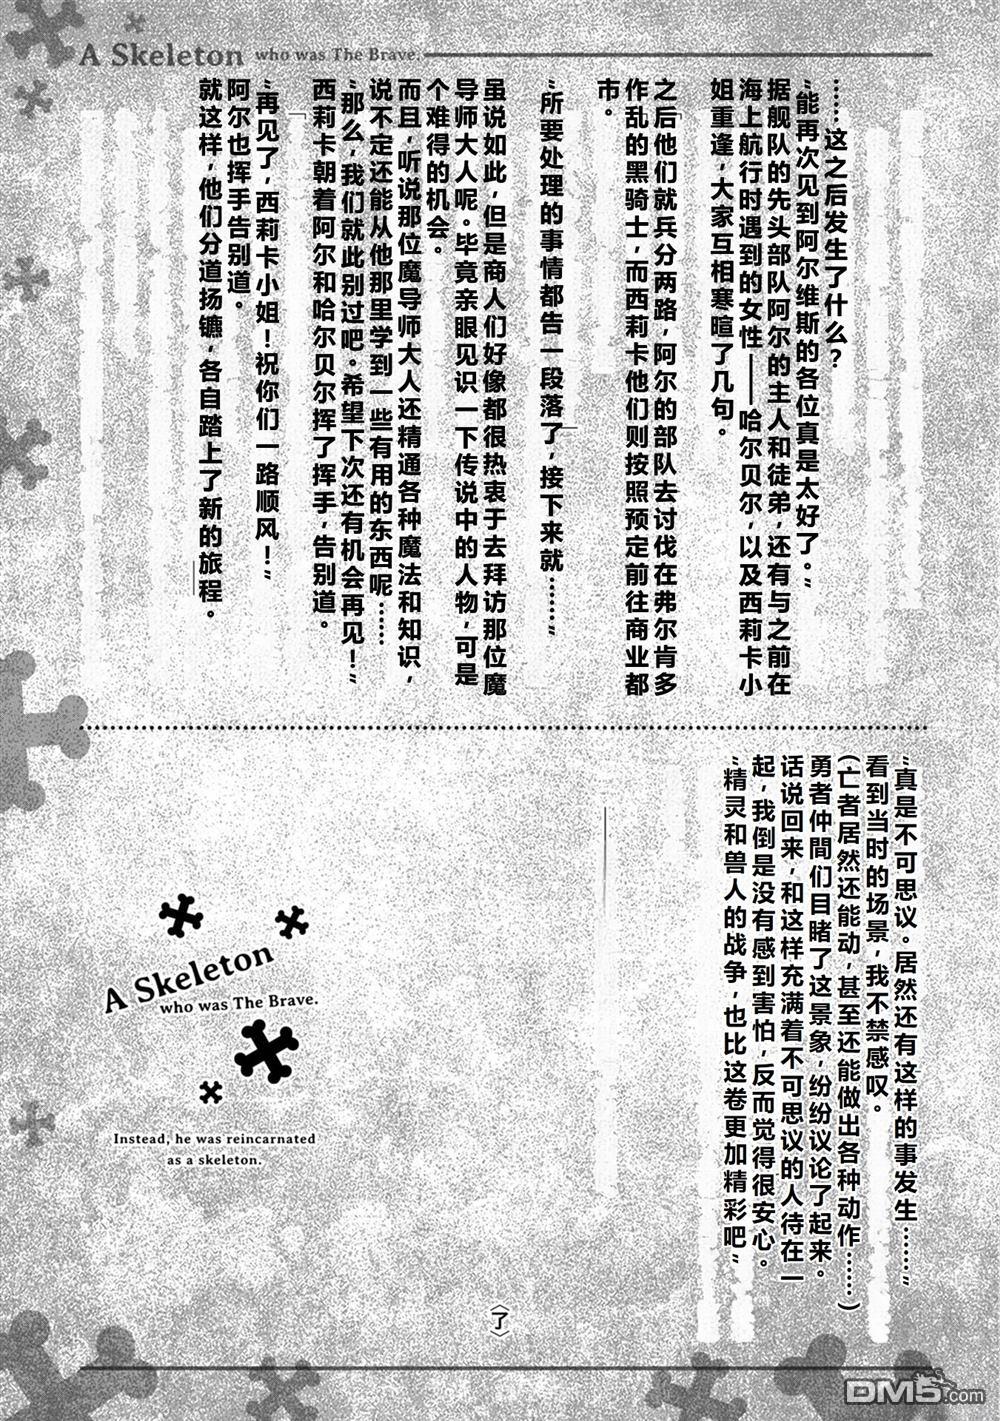 A Skeleton who was The Brave.
……这之后发生了什么？
“能再次见到阿尔维斯的各位真是太好了。”
据舰队的先头部队阿尔的主人和徒弟，还有与之前在
海上航行时遇到的女性——哈尔贝尔，以及西莉卡小
姐重逢，大家互相寒暄了几句。
之后他们就兵分两路，阿尔的部队去讨伐在弗尔肯多
作乱的黑骑士，而西莉卡他们则按照预定前往商业都
市。
“所要处理的事情都告一段落了，接下来就……”
虽说如此，但是商人们好像都很热衷于去拜访那位魔
导师大人呢。毕竟亲眼见识一下传说中的人物，可是
个难得的机会。
而且，听说那位魔导师大人还精通各种魔法和知识，
说不定还能从他那里学到一些有用的东西呢……
“那么，我们就此别过吧。希望下次还有机会再见！”
西莉卡朝着阿尔和哈尔贝尔挥了挥手，告别道。
“再见了，西莉卡小姐！祝你们一路顺风！”
阿尔也挥手告别道。
就这样，他们分道扬镳，各自踏上了新的旅程。
“真是不可思议。居然还有这样的事发生……”
看到当时的场景，我不禁感叹。
(亡者居然还能动，甚至还能做出各种动作……)
勇者仲間们目睹了这景象，纷纷议论了起来。
话说回来，和这样充满着不可思议的人待在一
起，我倒是没有感到害怕，反而觉得很安心。
“精灵和兽人的战争，也比这卷更加精彩吧”
〈了〉
A Skeleton
who was The Brave.
Instead, he was reincarnated
as a skeleton.
DM5.com